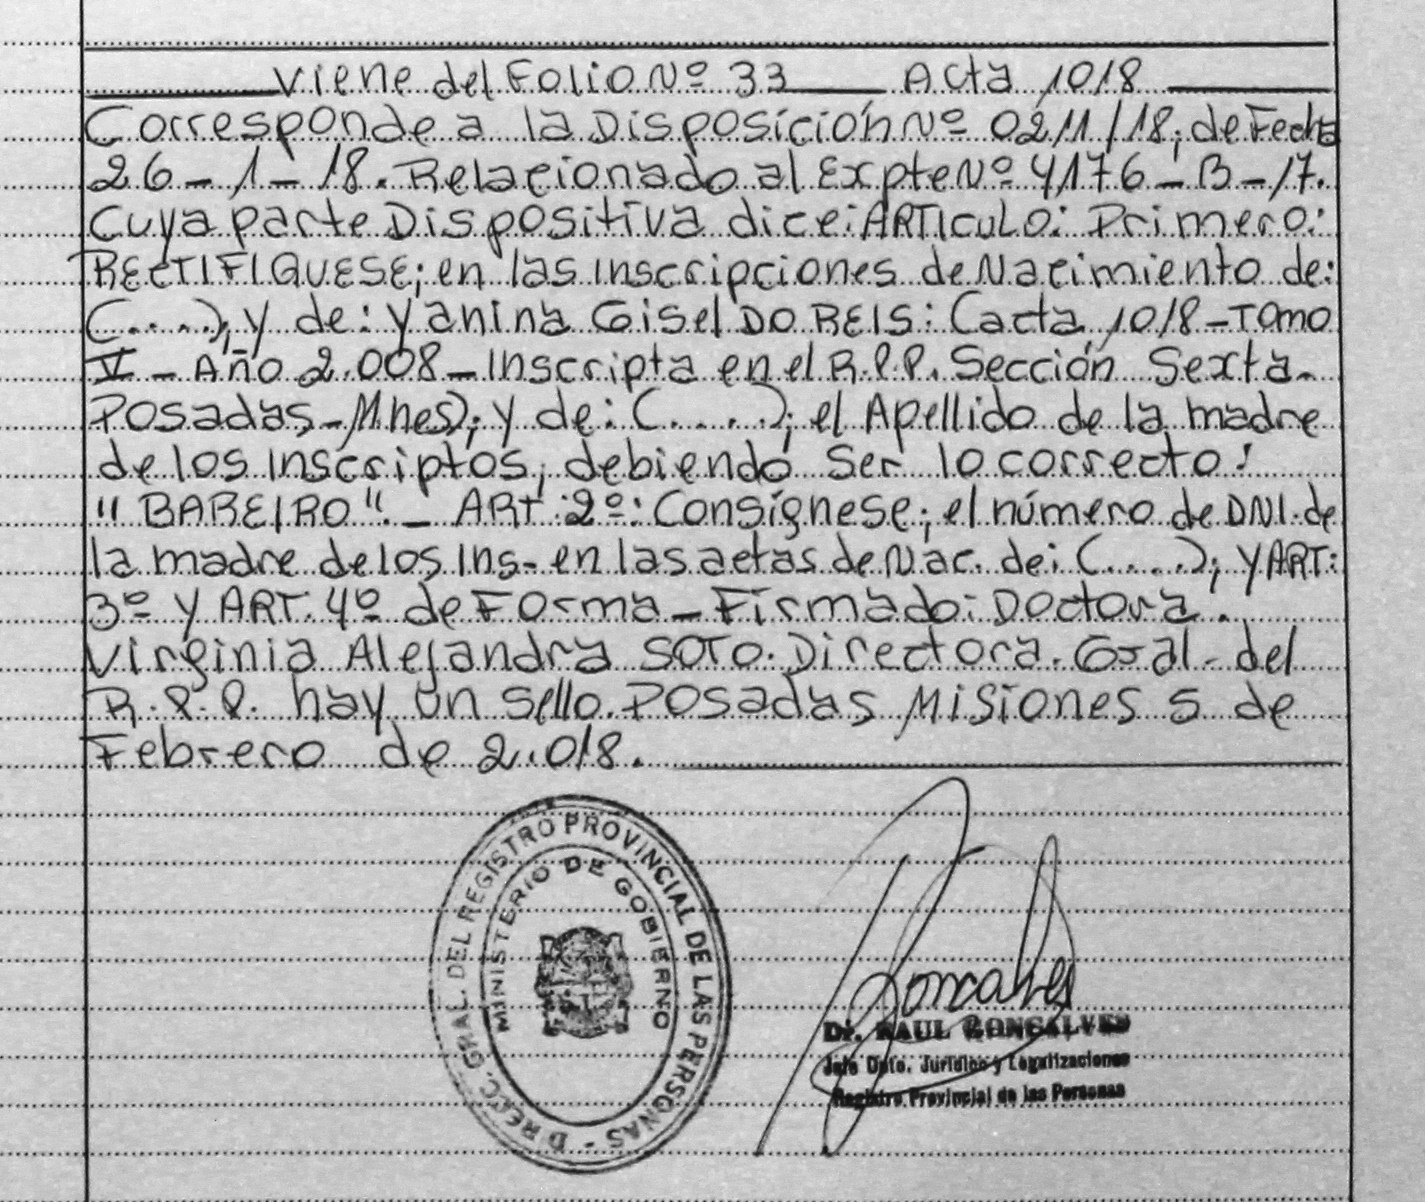 Viene del Folio Nº 33 Acta 1018
Corresponde a la Disposición Nº 0211/18; de Fecha
26-1-18. Relacionado al Expte Nº 4176-B-17.
Cuya parte Dispositiva dice: ARTICULO: Primero:
RECTIFIQUESE; en las inscripciones de Nacimiento de:
(.....), y de: Yanina Gisel DO REIS: (acta 1018-Tomo
V - Año 2.008 - Inscripta en el R.P.P. Sección Sexta-
Posadas-Mnes); y de: (.....); el Apellido de la madre
de los inscriptos, debiendo ser lo correcto:
"BAREIRO". - ART: 2º: Consígnese; el número de DNI. de
la madre de los Ins- en las actas de Nac. de: (.....); y ART:
3º y ART. 4º de Forma - Firmado: Doctora.
Virginia Alejandra SOTO. Directora. Gral. del
R.P.P. hay un sello. Posadas Misiones 5 de
Febrero de 2.018.
DIRECC. GRAL. DEL REGISTRO PROVINCIAL DE LAS PERSONAS -
MINISTERIO DE GOBIERNO
Goncalves
Dr. RAUL GONCALVES
Jefe Dpto. Jurídico y Legalizaciones
Registro Provincial de las Personas